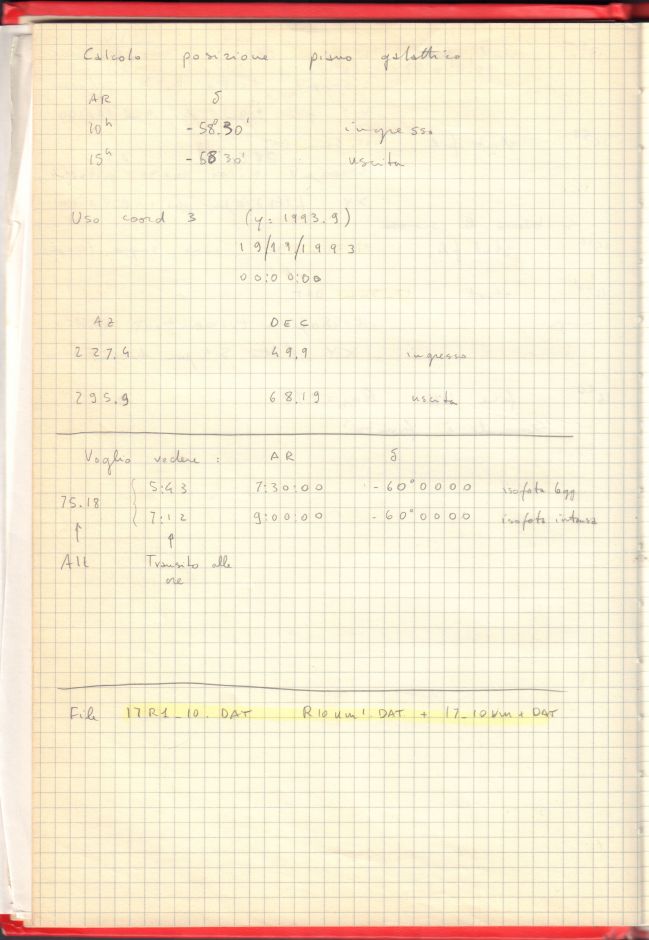 Calcolo posizione piano galattico
AR δ
10h -58°30' ingresso
15h -58 30' uscita
Uso coord 3 (y: 1993.9)
19/11/1993
00:00:00
AZ DEC
227.4 49.9 ingresso
295.9 68.19 uscita
Voglio vedere : AR δ
5:43 7:30:00 -60°0000 isofota legg
75.18
7:12 9:00:00 -60°0000 isofota intensa
Alt Transito alle
ore
File 17R1_10.DAT R10um1.DAT + 17_10um+DAT